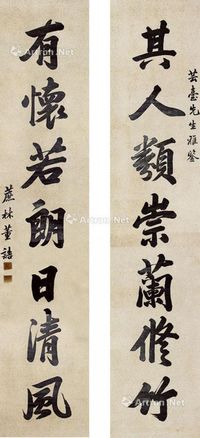 芸臺先生雅鑒
其人類崇蘭修竹
有懷若朗日清風
蔗林董誥